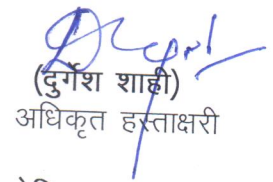 (दुर्गेश शाही)
अधिकृत हस्ताक्षरी